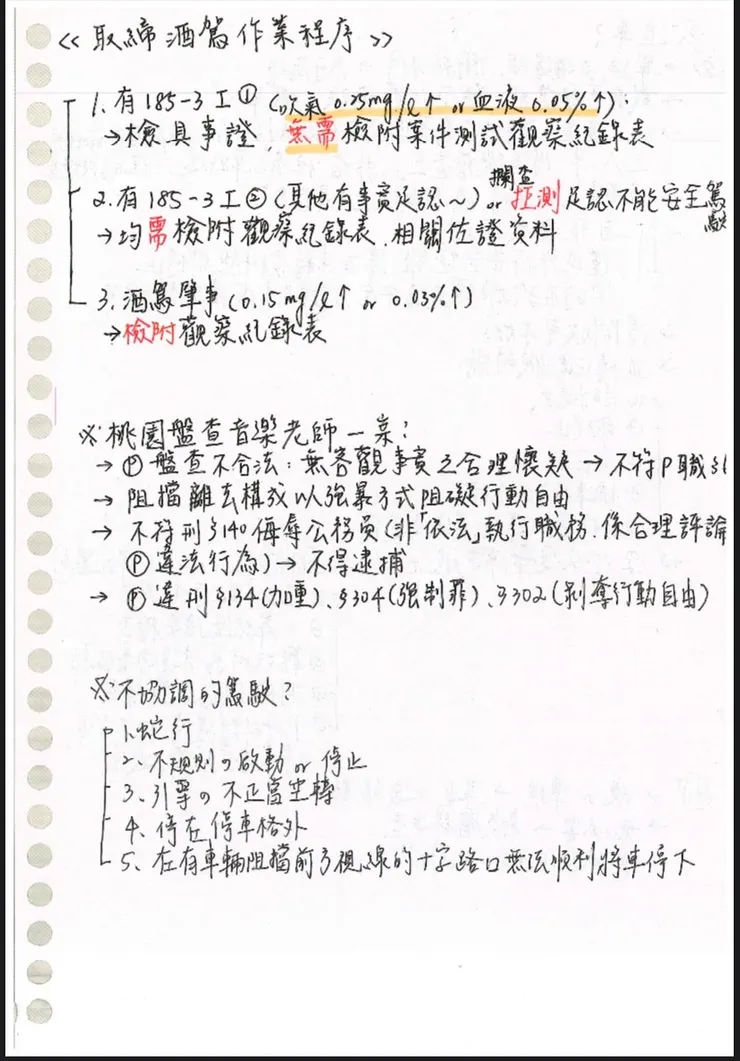 《取締酒駕作業程序》
1. 有185-3 I① (吹氣0.25mg/ℓ↑ or 血液0.05%↑):
→檢具事證, 無需檢附案件測試觀察紀錄表
攔查
2. 有185-3 I② (其他有事實足認~) or 拒測足認不能安全駕駛
→均需檢附觀察紀錄表、相關佐證資料
3. 酒駕肇事 (0.15mg/ℓ↑ or 0.03%↑)
→檢附觀察紀錄表
※桃園盤查音樂老師一案?
→ Ⓟ盤查不合法: 無客觀事實之合理懷疑 → 不符P職§6
→ 阻擋離去構成以強暴方式阻礙行動自由
→ 不符刑§140侮辱公務員(非「依法」執行職務、係合理評論
Ⓟ違法行為) → 不得逮捕
→ Ⓟ違刑§134(加重)、§304(強制罪)、§302(剝奪行動自由)
※不協調的駕駛?
1. 蛇行
2. 不規則の啟動 or 停止
3. 引擎の不正常空轉
4. 停在停車格外
5. 在有車輛阻擋前方視線的十字路口無法順利將車停下